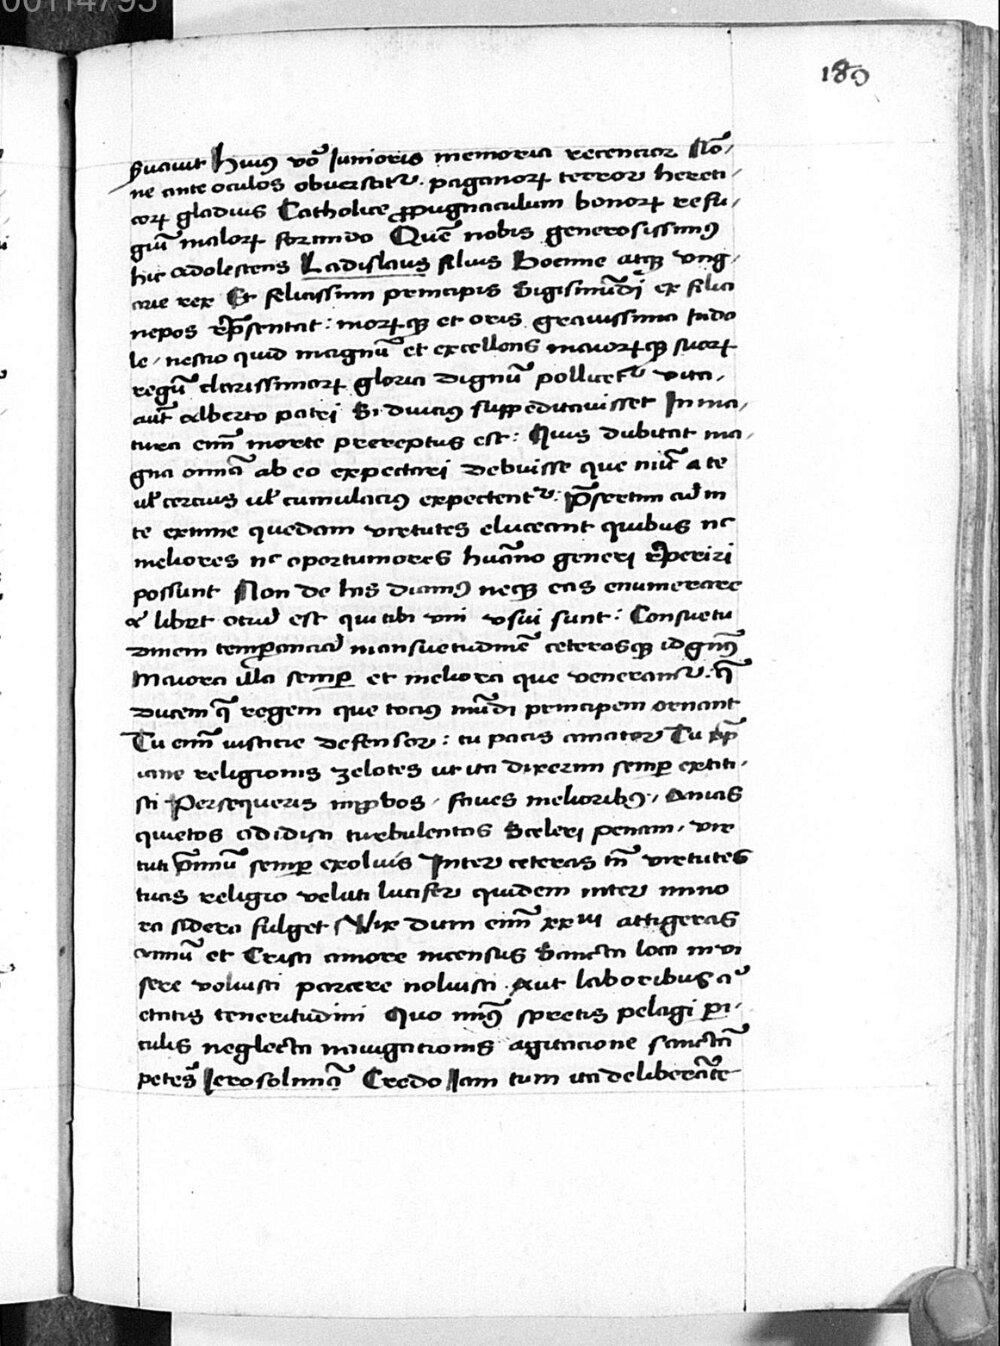 00114795
189
seruauit Huiꝰ vō Iunioris memoria recencior Nō⸗
ne ante oculos obuersatᷣ. paganoꝝ terror hereti⸗
coꝝ gladius Catholice ꝓpugnaculum bonoꝝ refu⸗
giū maloꝝ formido Quē nobis generosissimꝰ
hic adolescens Ladislaus filius Boemie atqꝫ vng⸗
arie rex Et felicissimi principis Sigismūdi ex filia
nepos rp̄sentat : moꝝqꝫ et oris grauissima Indo
le, nescio quid magnū et excellens maioꝝqꝫ suoꝝ
regū clarissimoꝝ gloria dignū pollicetᷣ vita,
aūt Alberto patri Si diuciꝰ suppeditauisset Inma⸗
tura em̄ morte prereptus est : Quis dubitat ma⸗
gna omīa ab eo expectari debuisse que nūc a te
ul̄ cercius ul̄ cumulaciꝰ expectentᷣ : p̄sertim cū in
te eximie quedam virtutes eluceant quibus nc
meliores nc oportuniores hūano generi r̄periri
possunt Non de his dicimꝰ neqꝫ eas enumerare
libet que tibi vni vsui sunt : Consuetu
dinem temperanciā mansuetudinē ceterasqꝫ id gnꝰ
Maiora illa semꝑ et meliora que veneramᷣ. q̄
ducem q̄ regem que tociꝰ mūdi principem ornant
Tu em̄ iusticie defensor : tu pacis amator Tu xp̄
iane religionis zelotes ut ita dixerim semꝑ extiti⸗
sti Persequeris imꝓbos, faues melioribꝰ, Amas
quietos odidisti turbulentos Sceleri penam, vir
tuti p̄miū semꝑ exoluis Inter ceteras tn̄ virtutes
tuas religio veluti lucifer quidem inter mino
ra sidera fulget Vix dum em̄ xxiii attigeras
annū et Cristi amore incensus Sancta loca invi
sere voluisti parcere noluisti. Aut laboribus aᷣ
etatis teneritudini Quo nimꝰ spretis pelagi peri⸗
culis neglecta nauigationis agitacione sanctā
petēs Ierosolimā Credo Iam tum ita deliberāte